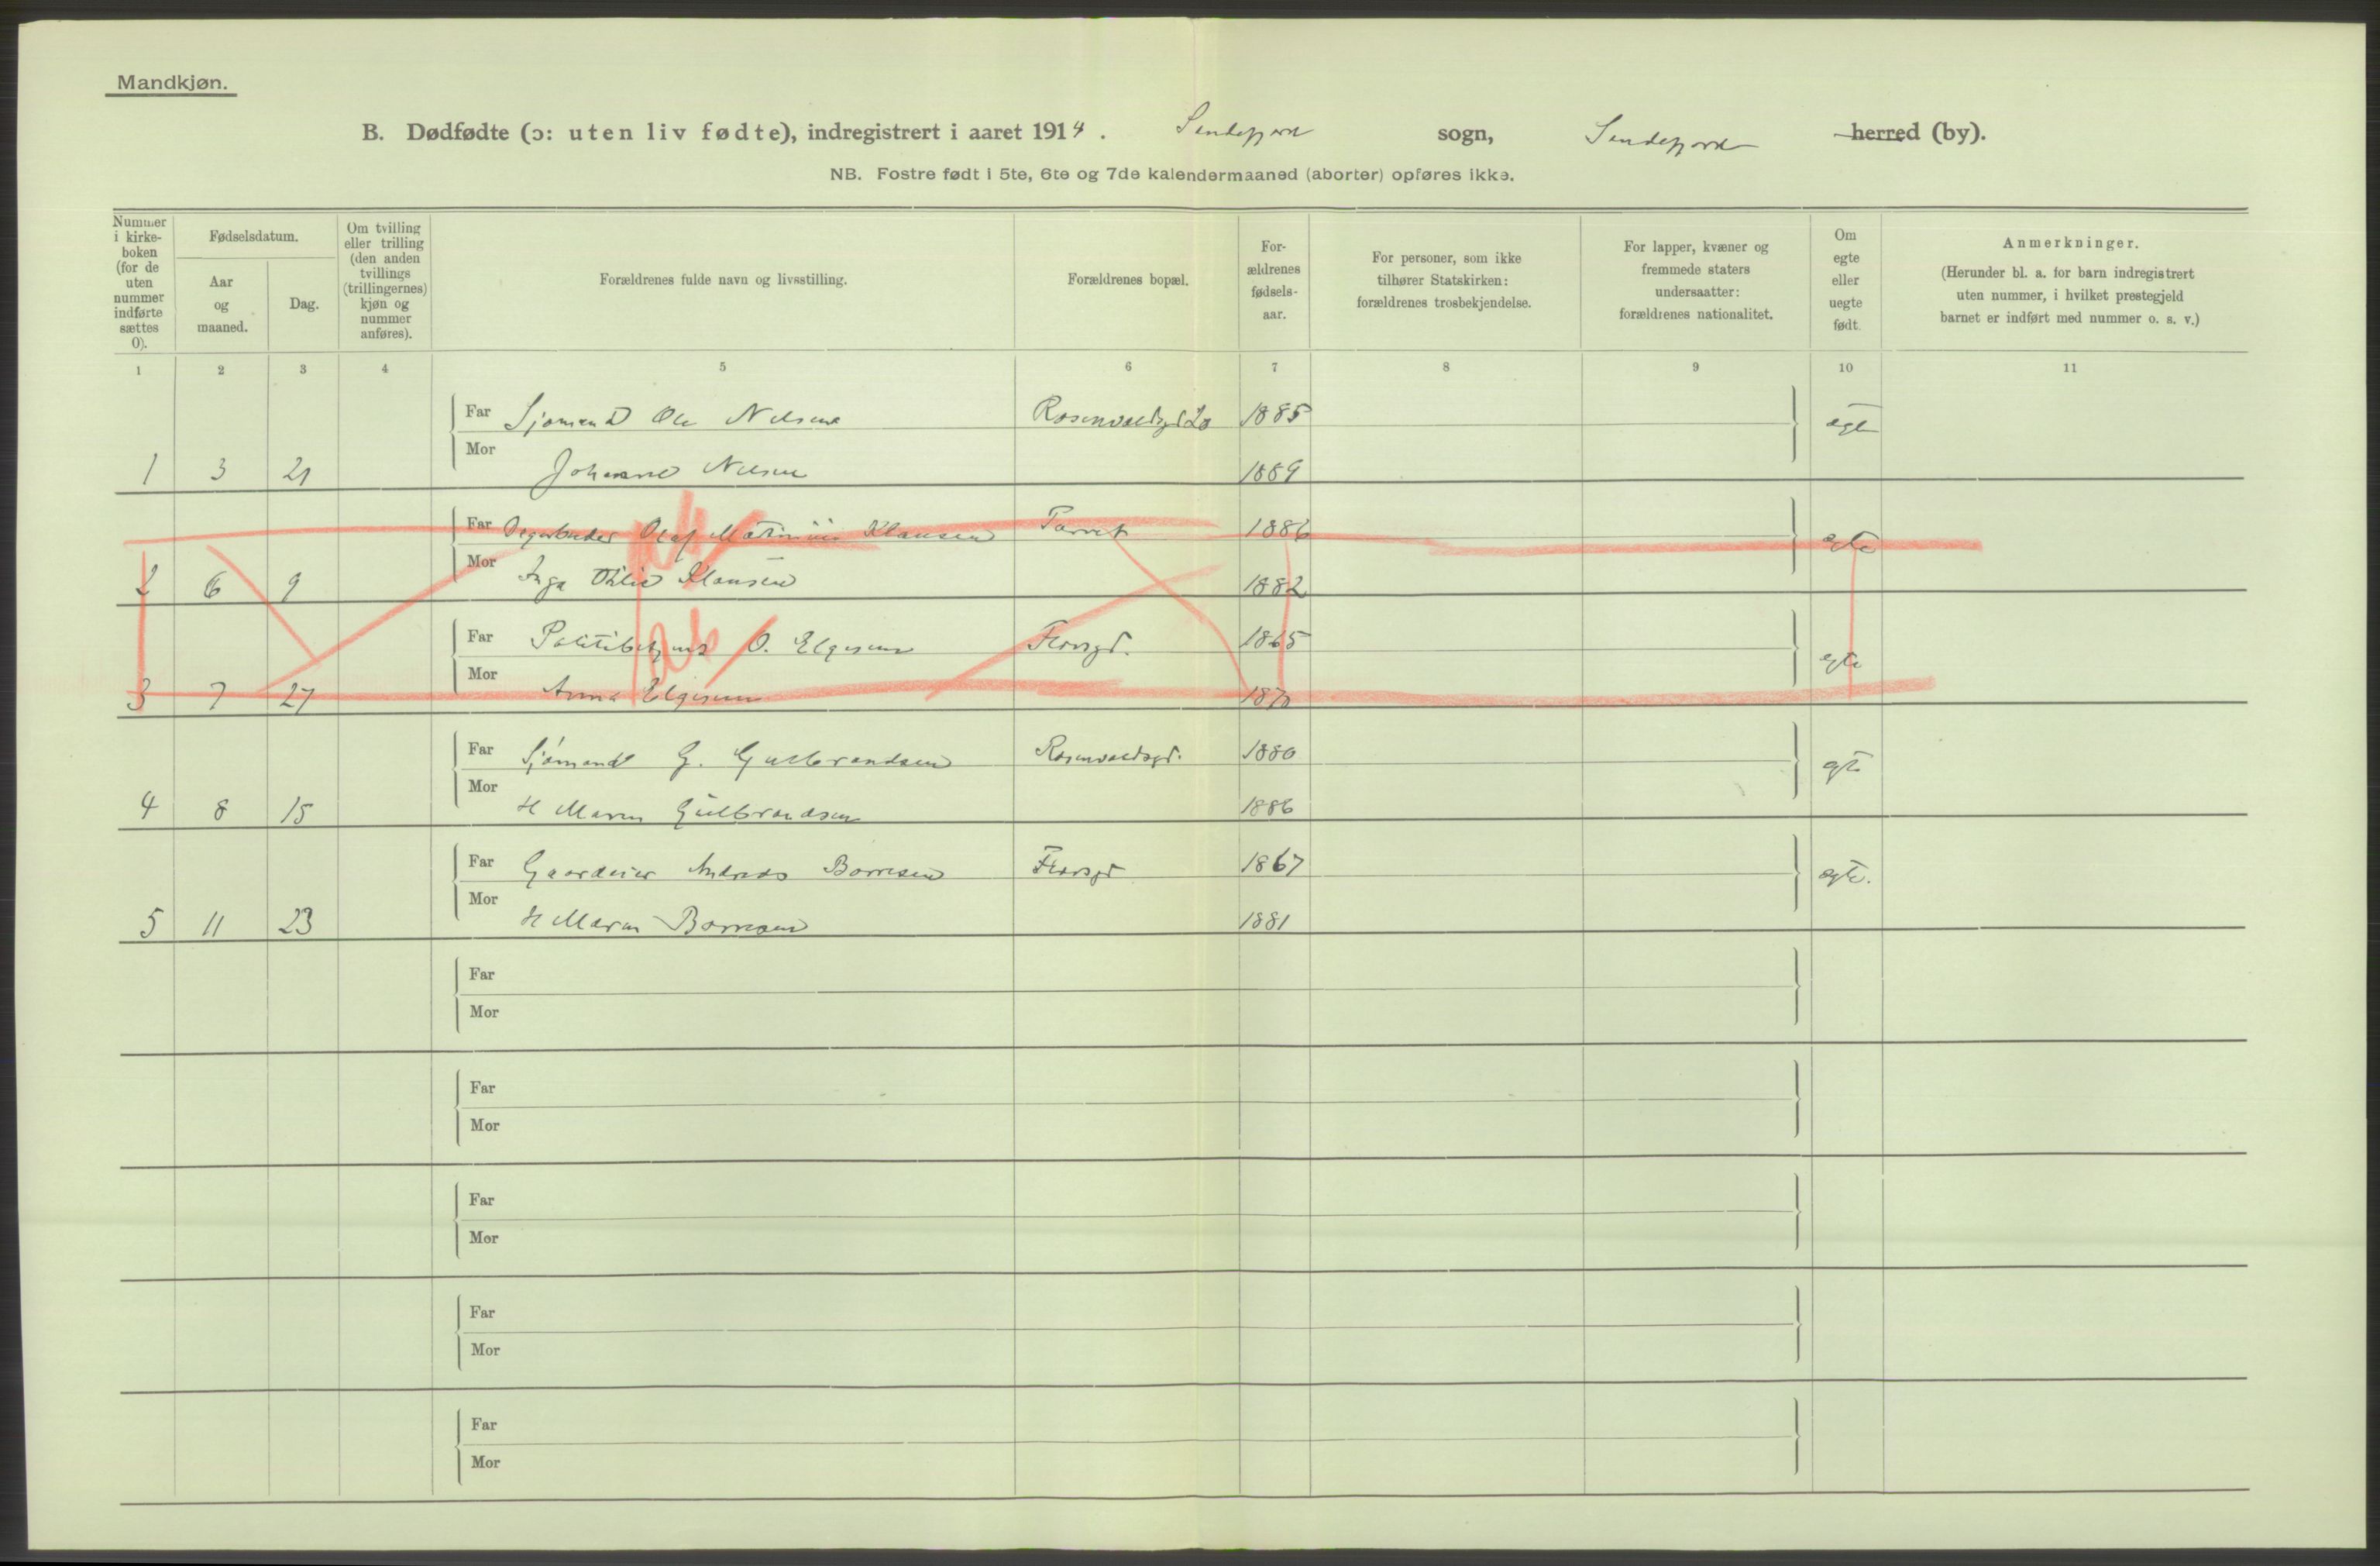 Mandkjøn.
B. Dødfødte (ɔ: uten liv fødte), indregistrert i aaret 1914. Sandefjord sogn, Sandefjord herred (by).
NB. Fostre født i 5te, 6te og 7de kalendermaaned (aborter) opføres ikke.
Nummer i kirke-boken (for de uten nummer indførte sættes 0).
Fødselsdatum.
Aar og maaned.
Dag.
Om tvilling eller trilling (den anden tvillings (trillingernes) kjøn og nummer anføres).
Forældrenes fulde navn og livsstilling.
Forældrenes bopæl.
For-ældrenes fødsels-aar.
For personer, som ikke tilhører Statskirken: forældrenes trosbekjendelse.
For lapper, kvæner og fremmede staters undersaatter: forældrenes nationalitet.
Om egte eller uegte født.
Anmerkninger.
(Herunder bl. a. for barn indregistrert uten nummer, i hvilket prestegjeld barnet er indført med nummer o. s. v.)
1 2 3 4 5 6 7 8 9 10 11
Far Sjømand Ole Nilsen Rosenvoldsgd 20 1885 egte
Mor
1 3 21 Johanne Nilsen 1889
Far Olaf Martinius Klausen 1886 egte
Mor
2 6 9 Inga Otilie Klausen 1882
Far Politibetjent O. Elgesem 1865 egte
Mor
3 7 27 Anna Elgesem 1870
Far Sjømand G. Gulbrandsen Rosenvoldsgt. 1880 egte
Mor
4 8 15 H Maren Gulbrandsen 1886
Far Gaardeier Andreas Borresen 1867 egte.
Mor
5 11 23 H Maren Borresen 1881
Far
Mor
Far
Mor
Far
Mor
Far
Mor
Far
Mor